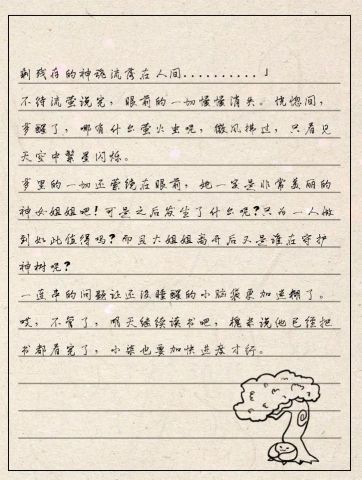 剩残存的神魂流落在人间..........」
不待流萤说完，眼前的一切慢慢消失。恍惚间，
梦醒了，哪有什么萤火虫呢，微风拂过，只看见
天空中繁星闪烁。
梦里的一切还萦绕在眼前，她一定是非常美丽的
神女姐姐吧！可是之后发生了什么呢？只为一人做
到如此值得吗？而且大姐姐离开后又是谁在守护
神树呢？
一连串的问题让还没睡醒的小脑袋更加迷糊了。
哎，不管了，明天继续读书吧，槐来说他已经把
书都看完了，小柒也要加快进度才行。